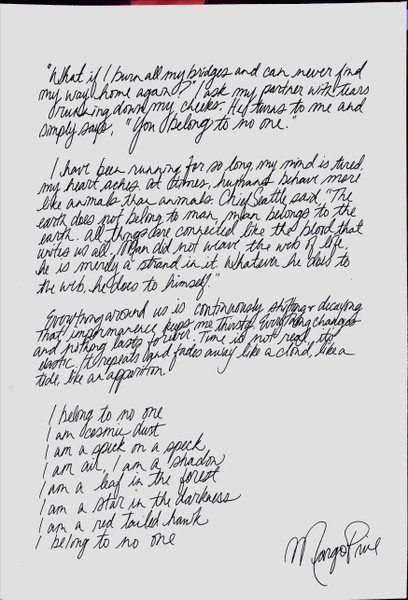 "What if I burn all my bridges and can never find
my way home again?" I ask my partner with tears
running down my cheeks. He turns to me and
simply says, "You belong to no one."
I have been running for so long, my mind is tired.
my heart aches. At times, humans behave more
like animals than animals. Chief Seattle said, "The
earth does not belong to man, man belongs to the
earth. All things are connected like the blood that
unites us all. Man did not weave the web of life,
he is merely a strand in it. Whatever he does to
the web, he does to himself."
Everything around us is continuously shifting & decaying
that impermanence keeps me thirsty. Everything changes
and nothing lasts forever. Time is not real, its
elastic. It repeats and fades away like a cloud, like a
tide, like an apparition.
I belong to no one
I am cosmic dust
I am a speck on a speck
I am air, I am a shadow
I am a leaf in the forest
I am a star in the darkness
I am a red tailed hawk
I belong to no one
Margo Price